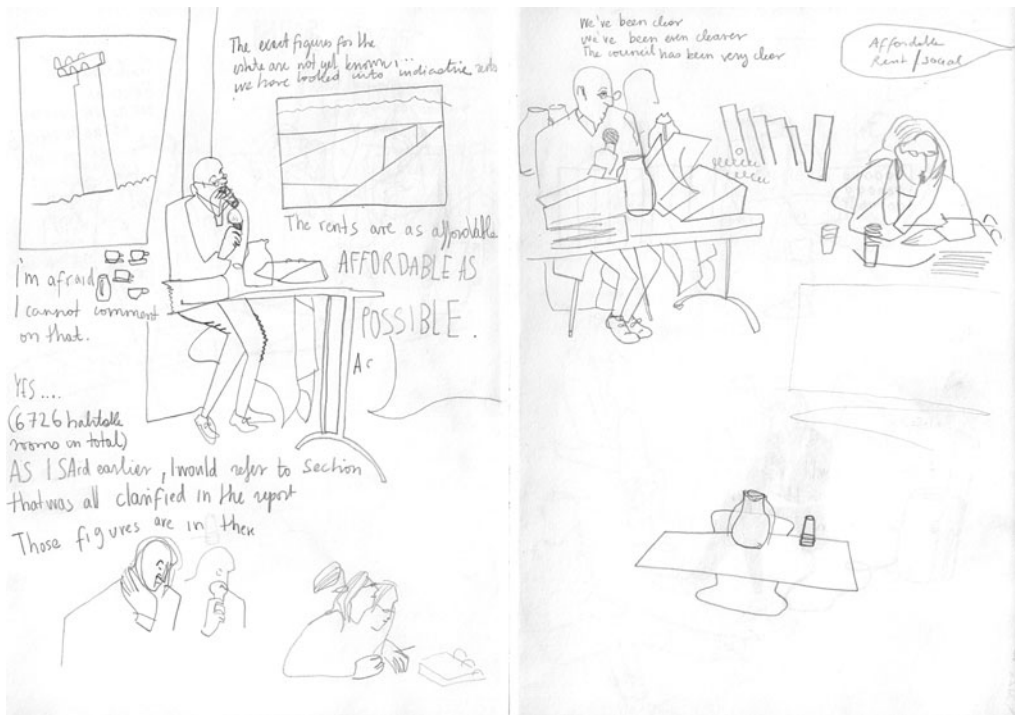 The exact figures for the
estate are not yet known...
we have looked into indicative rents
The rents are as affordable
AFFORDABLE AS
POSSIBLE.
I'm afraid
I cannot comment
on that.
YES....
(6726 habitable
rooms in total)
AS I SAid earlier, I would refer to section
that was all clarified in the report
Those figures are in there
We've been clear
we've been even clearer
The council has been very clear
Affordable
Rent / social